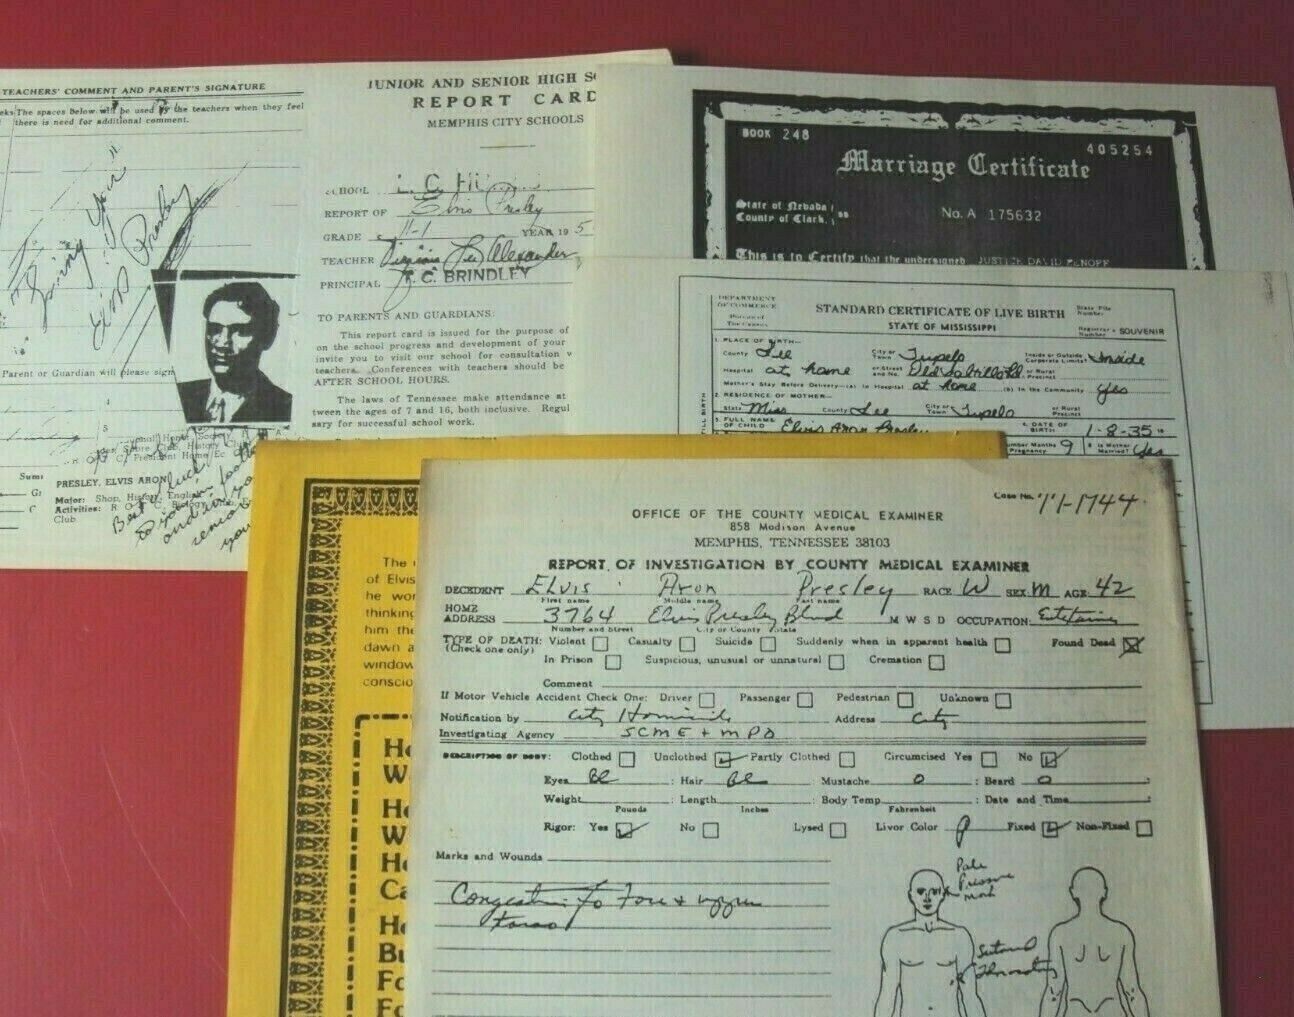 TEACHERS' COMMENT AND PARENT'S SIGNATURE
The spaces below will be used by the teachers when they feel
there is need for additional comment.
Elvis Presley
Parent or Guardian will please sign
PRESLEY, ELVIS ARON
Major: Shop, History, English
Activities: R. O. T. C., Biology Club,
Club
Best of luck
JUNIOR AND SENIOR HIGH
REPORT CARD
MEMPHIS CITY SCHOOLS
SCHOOL L. C. H
REPORT OF Elvis Presley
GRADE 11-1 YEAR 195
TEACHER Virginia Lee Alexander
PRINCIPAL C. BRINDLEY
TO PARENTS AND GUARDIANS:
This report card is issued for the purpose of
on the school progress and development of your
invite you to visit our school for consultation
teachers. Conferences with teachers should be
AFTER SCHOOL HOURS.
The laws of Tennessee make attendance
tween the ages of 7 and 16, both inclusive. Regul
sary for successful school work.
BOOK 248 405254
Marriage Certificate
State of Nevada ss
County of Clark,
No. A 175632
This is to Certify that the undersigned JUSTICE DAVID ZENOFF
DEPARTMENT
OF COMMERCE
Bureau of
The Census
STANDARD CERTIFICATE OF LIVE BIRTH
STATE OF MISSISSIPPI
State File
Number
Registrar's
Number SOUVENIR
1. PLACE OF BIRTH—
County Lee City or Town Tupelo Inside or Outside Corporate Limits? Inside
Hospital at home or Street and No. Old Saltillo Rd or Rural Precinct
Mother's Stay Before Delivery—(a) In Hospital at home (b) In the Community yes
2. RESIDENCE OF MOTHER—
State Miss County Lee City or Town Tupelo or Rural Precinct
3. FULL NAME OF CHILD Elvis Aron Presley 4. DATE OF BIRTH 1-8-35
Number Months Pregnancy 9 8. Is Mother Married? Yes
The
of Elvis
he wor
thinking
him the
dawn a
window
conscio
He
W
He
W
He
Ca
He
Bu
Fo
Fo
Case No. 77-1944
OFFICE OF THE COUNTY MEDICAL EXAMINER
858 Madison Avenue
MEMPHIS, TENNESSEE 38103
REPORT OF INVESTIGATION BY COUNTY MEDICAL EXAMINER
DECEDENT Elvis Aron Presley RACE W SEX M AGE 42
First name Middle name Last name
HOME ADDRESS 3764 Elvis Presley Blvd M W S D OCCUPATION: Entertainer
Number and Street City or County State
TYPE OF DEATH: Violent Casualty Suicide Suddenly when in apparent health Found Dead
(Check one only)
In Prison Suspicious, unusual or unnatural Cremation
Comment
If Motor Vehicle Accident Check One: Driver Passenger Pedestrian Unknown
Notification by City Homicide Address City
Investigating Agency SCME + MPD
DESCRIPTION OF BODY: Clothed Unclothed Partly Clothed Circumcised Yes No
Eyes Bl Hair Bl Mustache 0 Beard 0
Weight Length Body Temp Date and Time
Pounds Inches Fahrenheit
Rigor: Yes No Lysed Livor Color P Fixed Non-Fixed
Marks and Wounds
Congestion to face & upper
torso
Pale
Pressure
Mark